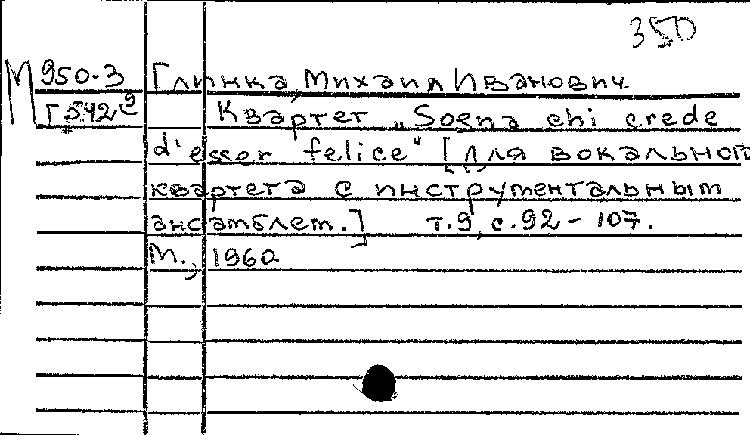 350
М 950-3 Глинка, Михаил Иванович.
Г 542⁹ Квартет „Sogna chi crede
d'esser felice" [Для вокального
квартета с инструментальным
ансамблем.] т.9, с.92-107.
М., 1960